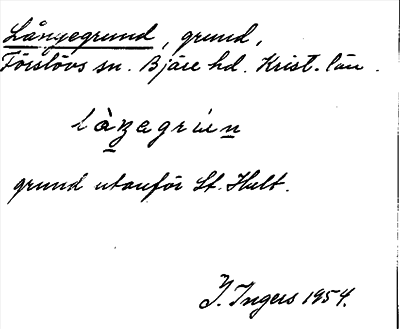 Långegrund, grund,
Förslövs sn. Bjäre hd. Krist. län.
grund utanför St. Hult.
I. Ingers 1954.